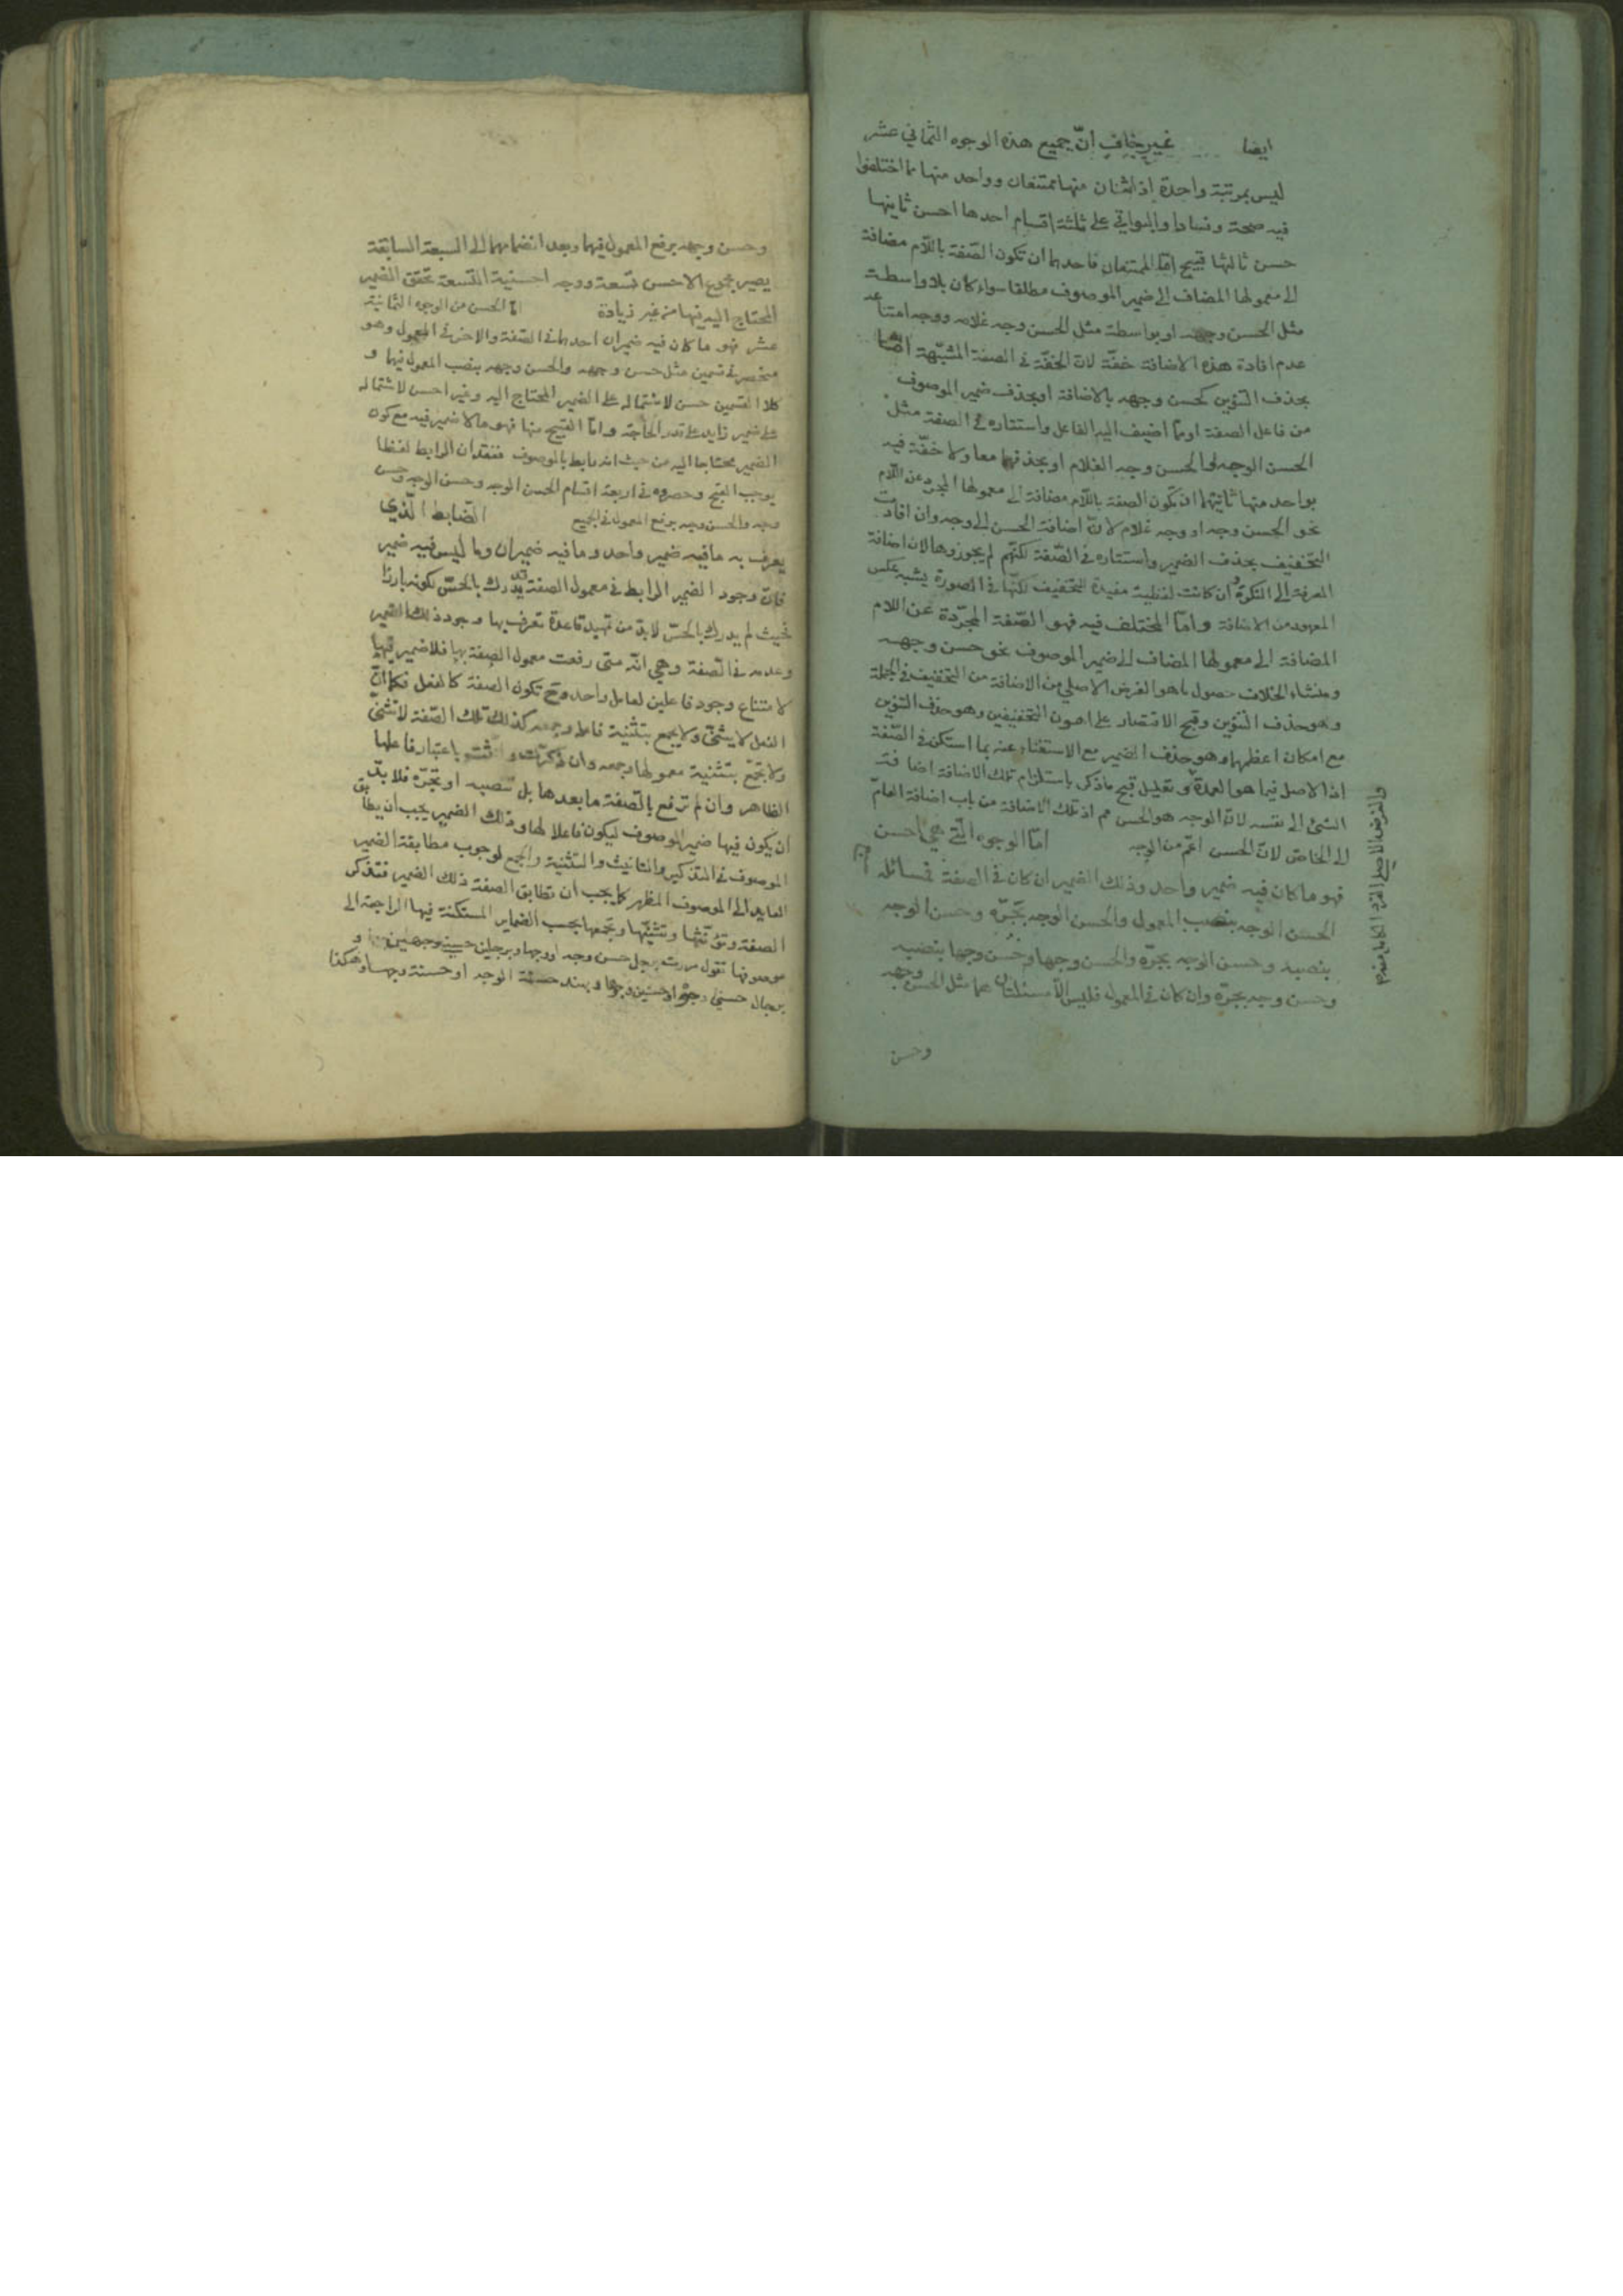 ايضا غير خاف انّ جميع هذه الوجوه الثماني عشر
ليس بمرتبة واحدة اذ اثنان منها ممتنعان وواحد منها مما اختلفوا
فيه صحة وفسادا والبواقي على ثلثة اقسام احدها احسن ثانيها
حسن ثالثها قبيح امّا الممتنعان فاحدهما ان تكون الصّفة باللّام مضافة
الى معمولها المضاف الى ضمير الموصوف مطلقا سواء كان بلا واسطة
مثل الحسن وجهه او بواسطة مثل الحسن وجه غلامه ووجه امتناعه
عدم افادة هذه الاضافة خفّة لانّ الخفّة في الصفة المشبّهة امّا
بحذف التنوين كحسن وجهه بالاضافة او بحذف ضمير الموصوف
من فاعل الصفة او ممّا اضيف اليه الفاعل واستتاره في الصفة مثل
الحسن الوجه والحسن وجه الغلام او بحذفهما معا ولا خفّة فيه
بواحد منها ثانيهما ان تكون الصفة باللّام مضافة الى معمولها المجرد عن اللّام
نحو الحسن وجه او وجه غلام لانّ اضافة الحسن الى وجه وان افادت
التّخفيف بحذف الضمير واستتاره في الصّفة لكنّهم لم يجوزوها لان اضافة
المعرفة الى النكرة وان كانت لفظية مفيدة للتخفيف لكنّها في الصورة يشبه عكس
المعهود من الاضافة وامّا المختلف فيه فهو الصّفة المجرّدة عن اللام
المضافة الى معمولها المضاف الى ضمير الموصوف نحو حسن وجهه
ومنشاء الخلاف حصول ما هو الغرض الاصلي من الاضافة من التخفيف في الجملة
وهو حذف التنوين وقبح الاقتصار على اهون التخفيفين وهو حذف التنوين
مع امكان اعظمهما وهو حذف الضمير مع الاستغناء عنه بما استكن في الصّفة
اذ الاصل فيما هو العمدة وتعليل قبح ما ذكر باستلزام تلك الاضافة اضافة
الشئ الى نفسه لانّ الوجه هو الحسن مم اذ تلك الاضافة من باب اضافة العامّ
الى الخاصّ لانّ الحسن اعمّ من الوجه امّا الوجوه الّتي هي احسن
فهو ما كان فيه ضمير واحد وذلك الضمير ان كان في الصفة فمسائله
الحسن الوجه بنصب المعمول والحسن الوجه بجرّه وحسن الوجه
بنصبه وحسن الوجه بجرّه والحسن وجها وحسن وجها بنصبه
وحسن وجه بجرّه وان كان في المعمول فليس الّا مسئلتان هما مثل الحسن وجهه
وحسن
وحسن وجهه برفع المعمول فيهما وبعد انضمامهما الى السبعة السابقة
يصير مجموع الاحسن تسعة ووجه احسنية التّسعة تحقق الضمير
المحتاج اليه فيها من غير زيادة امّا الحسن من الوجوه الثمانية
عشر فهو ما كان فيه ضميران احدهما في الصّفة والاخر في المعمول وهو
منحصر في قسمين مثل حسن وجهه والحسن وجهه بنصب المعمول فيهما و
كلا القسمين حسن لاشتماله على الضمير المحتاج اليه وغير احسن لاشتماله
على ضمير زايد على قدر الحاجة وامّا القبيح منها فهو ما لا ضمير فيه مع كون
الضمير محتاجا اليه من حيث انه رابط بالموصوف ففقدان الرابط لفظا
يوجب القبح وحصروه في اربعة اقسام الحسن الوجه وحسن الوجه وحسن
وجه والحسن وجه برفع المعمول في الجميع الضّابط الّذي
يعرف به ما فيه ضمير واحد وما فيه ضميران وما ليس فيه ضمير
فانّ وجود الضمير الرابط في معمول الصفة قد يدرك بالحسّ لكونه بارزا
فحيث لم يدرك بالحسّ لا بدّ من تمهيد قاعدة تعرف بها وجود ذلك الضمير
وعدمه في الصّفة وهي انّه متى رفعت معمول الصفة بها فلا ضمير فيها
لامتناع وجود فاعلين لعامل واحد وح تكون الصفة كالفعل فكما انّ
الفعل لا يثنّى ولا يجمع بتثنية فاعله وجمعه كذلك تلك الصّفة لا تثنّى
ولا تجمّع بتثنية معمولها وجمعه وان ذكّرت وانّثت باعتبار فاعلها
الظاهر وان لم ترفع بالصّفة ما بعدها بل تنصبه او تجرّه فلا بدّ
ان يكون فيها ضمير الموصوف ليكون فاعلا لها وذلك الضمير يجب ان يطابق
الموصوف في التذكير والتانيث والتثنية والجمع لوجوب مطابقة الضمير
العايد الى الموصوف المظهر كما يجب ان تطابق الصفة ذلك الضمير فتذكر
الصفة وتؤنّثها وتثنيّها وتجمعها بحسب الضماير المستكنة فيها الراجعة الى
موصوفها تقول مررت برجل حسن وجه او وجها وبرجلين حسني وجهين و
برجال حسني وجوه او حسنين وجوها وبهند حسنة الوجه او حسنة وجها وهكذا